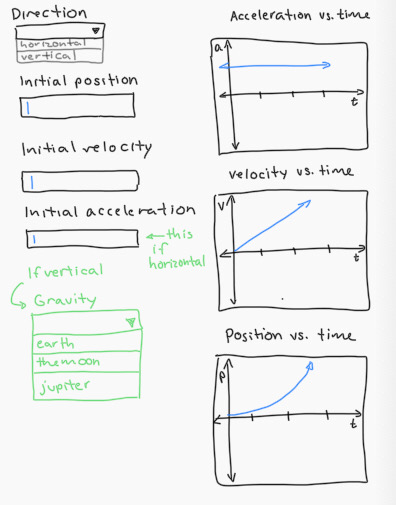 Direction
horizontal
vertical
Initial position
Initial velocity
Initial acceleration
←this
if
horizontal
If vertical
Gravity
earth
the moon
jupiter
Acceleration vs. time
a
t
velocity vs. time
v
t
Position vs. time
p
t